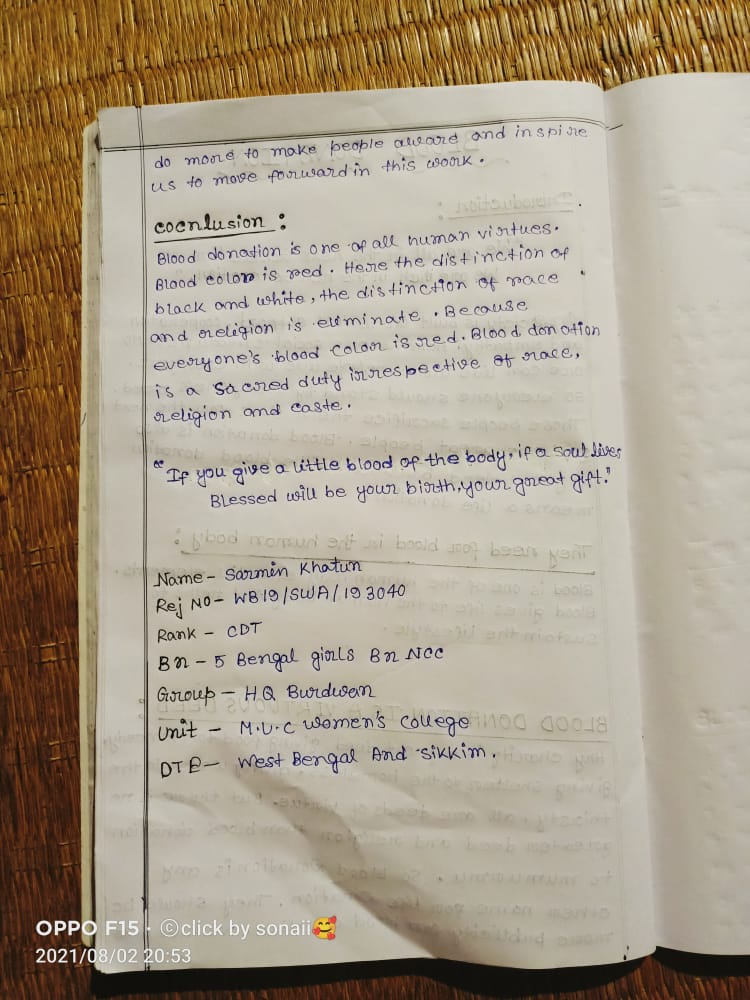 do more to make people aware and inspire
us to move forward in this work.
cocnlusion :
Blood donation is one of all human virtues.
Blood color is red. Here the distinction of
black and white, the distinction of race
and religion is eliminate. Because
everyone's blood color is red. Blood donation
is a sacred duty irrespective of race,
religion and caste.
"If you give a little blood of the body, if a soul lives
Blessed will be your birth, your great gift."
Name - Sarmin Khatun
Rej NO - WB19/SWA/193040
Rank - CDT
Bn - 5 Bengal girls Bn NCC
Group - H.Q Burdwan
Unit - M.U.C women's college
DTE - West Bengal And Sikkim.
OPPO F15 · ©click by sonaii🥰
2021/08/02 20:53